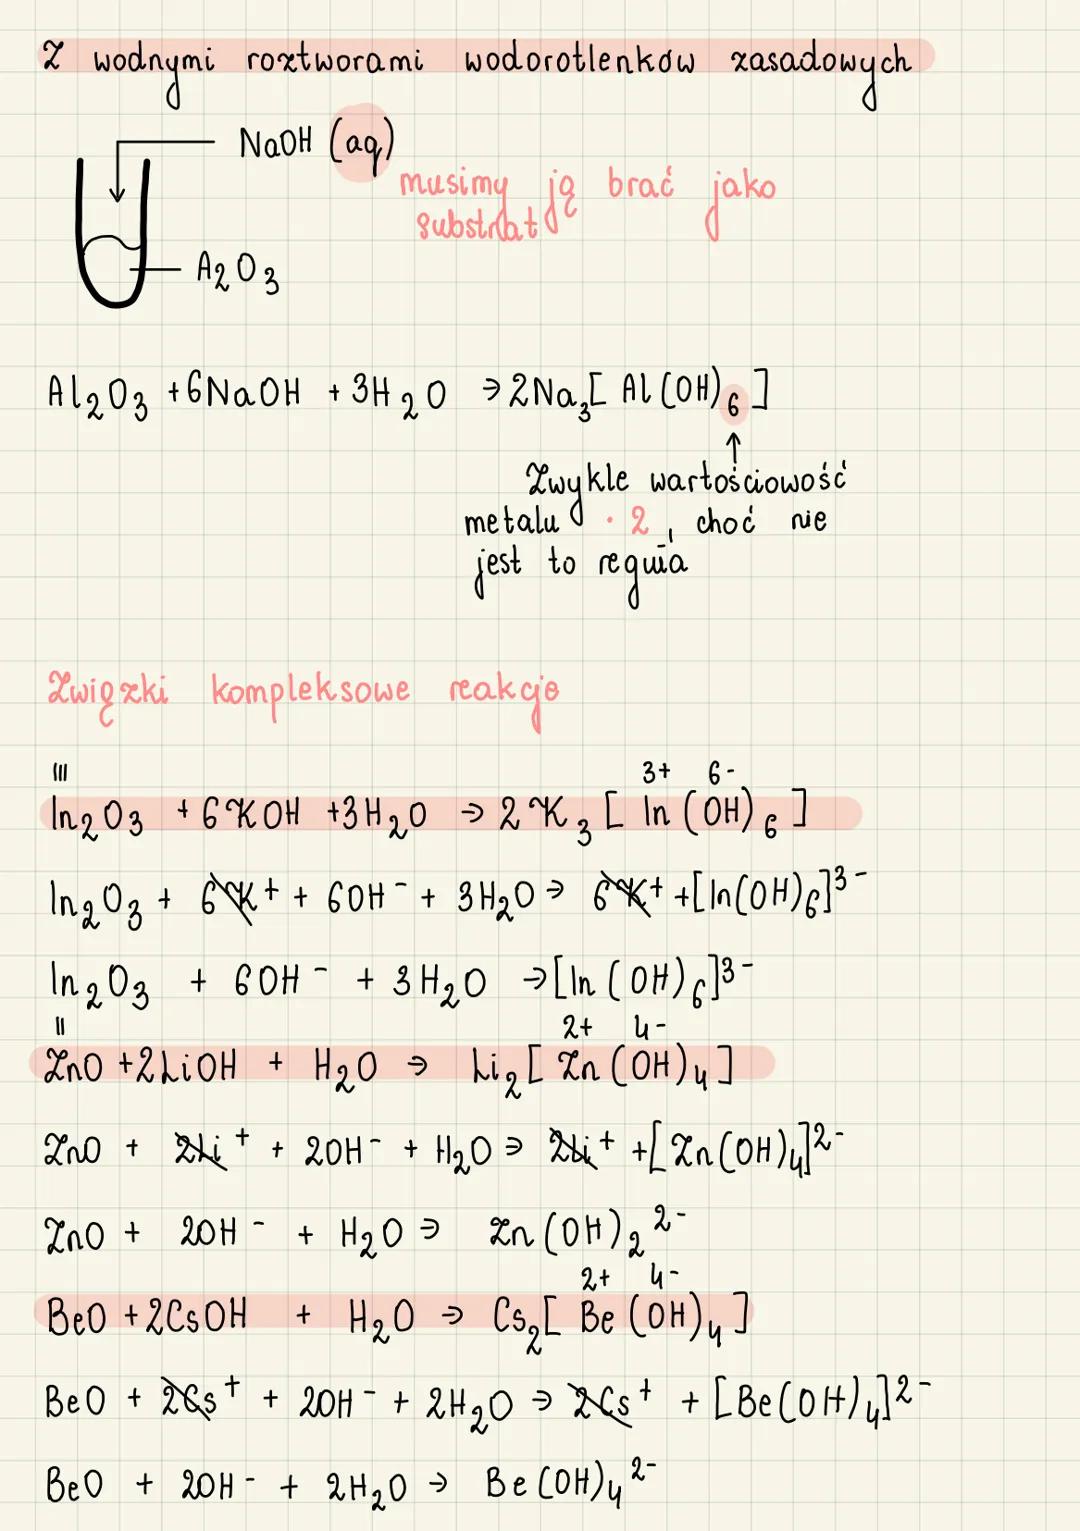 Z wodnymi roztworami wodorotlenków zasadowych
NaOH (aq)
musimy ją brać jako
substrat
A₂O₃
Al₂O₃ + 6NaOH + 3H₂O → 2Na₃[Al(OH)₆]
↑
Zwykle wartościowość
metalu · 2, choć nie
jest to regułą
Związki kompleksowe reakcje
III 3+ 6-
In₂O₃ + 6KOH + 3H₂O → 2K₃[In(OH)₆]
In₂O₃ + 6K⁺ + 6OH⁻ + 3H₂O → 6K⁺ + [In(OH)₆]³⁻
In₂O₃ + 6OH⁻ + 3H₂O → [In(OH)₆]³⁻
II 2+ 4-
ZnO + 2LiOH + H₂O → Li₂[Zn(OH)₄]
ZnO + 2Li⁺ + 2OH⁻ + H₂O → 2Li⁺ + [Zn(OH)₄]²⁻
ZnO + 2OH⁻ + H₂O → Zn(OH)₂²⁻
2+ 4-
BeO + 2CsOH + H₂O → Cs₂[Be(OH)₄]
BeO + 2Cs⁺ + 2OH⁻ + 2H₂O → 2Cs⁺ + [Be(OH)₄]²⁻
BeO + 2OH⁻ + 2H₂O → Be(OH)₄²⁻